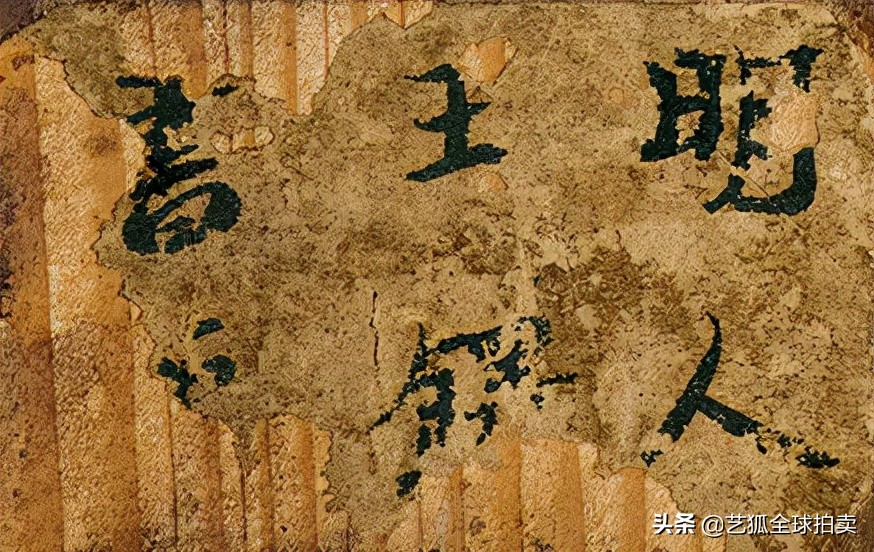 明人
王鐸
書
头条 @艺狐全球拍卖